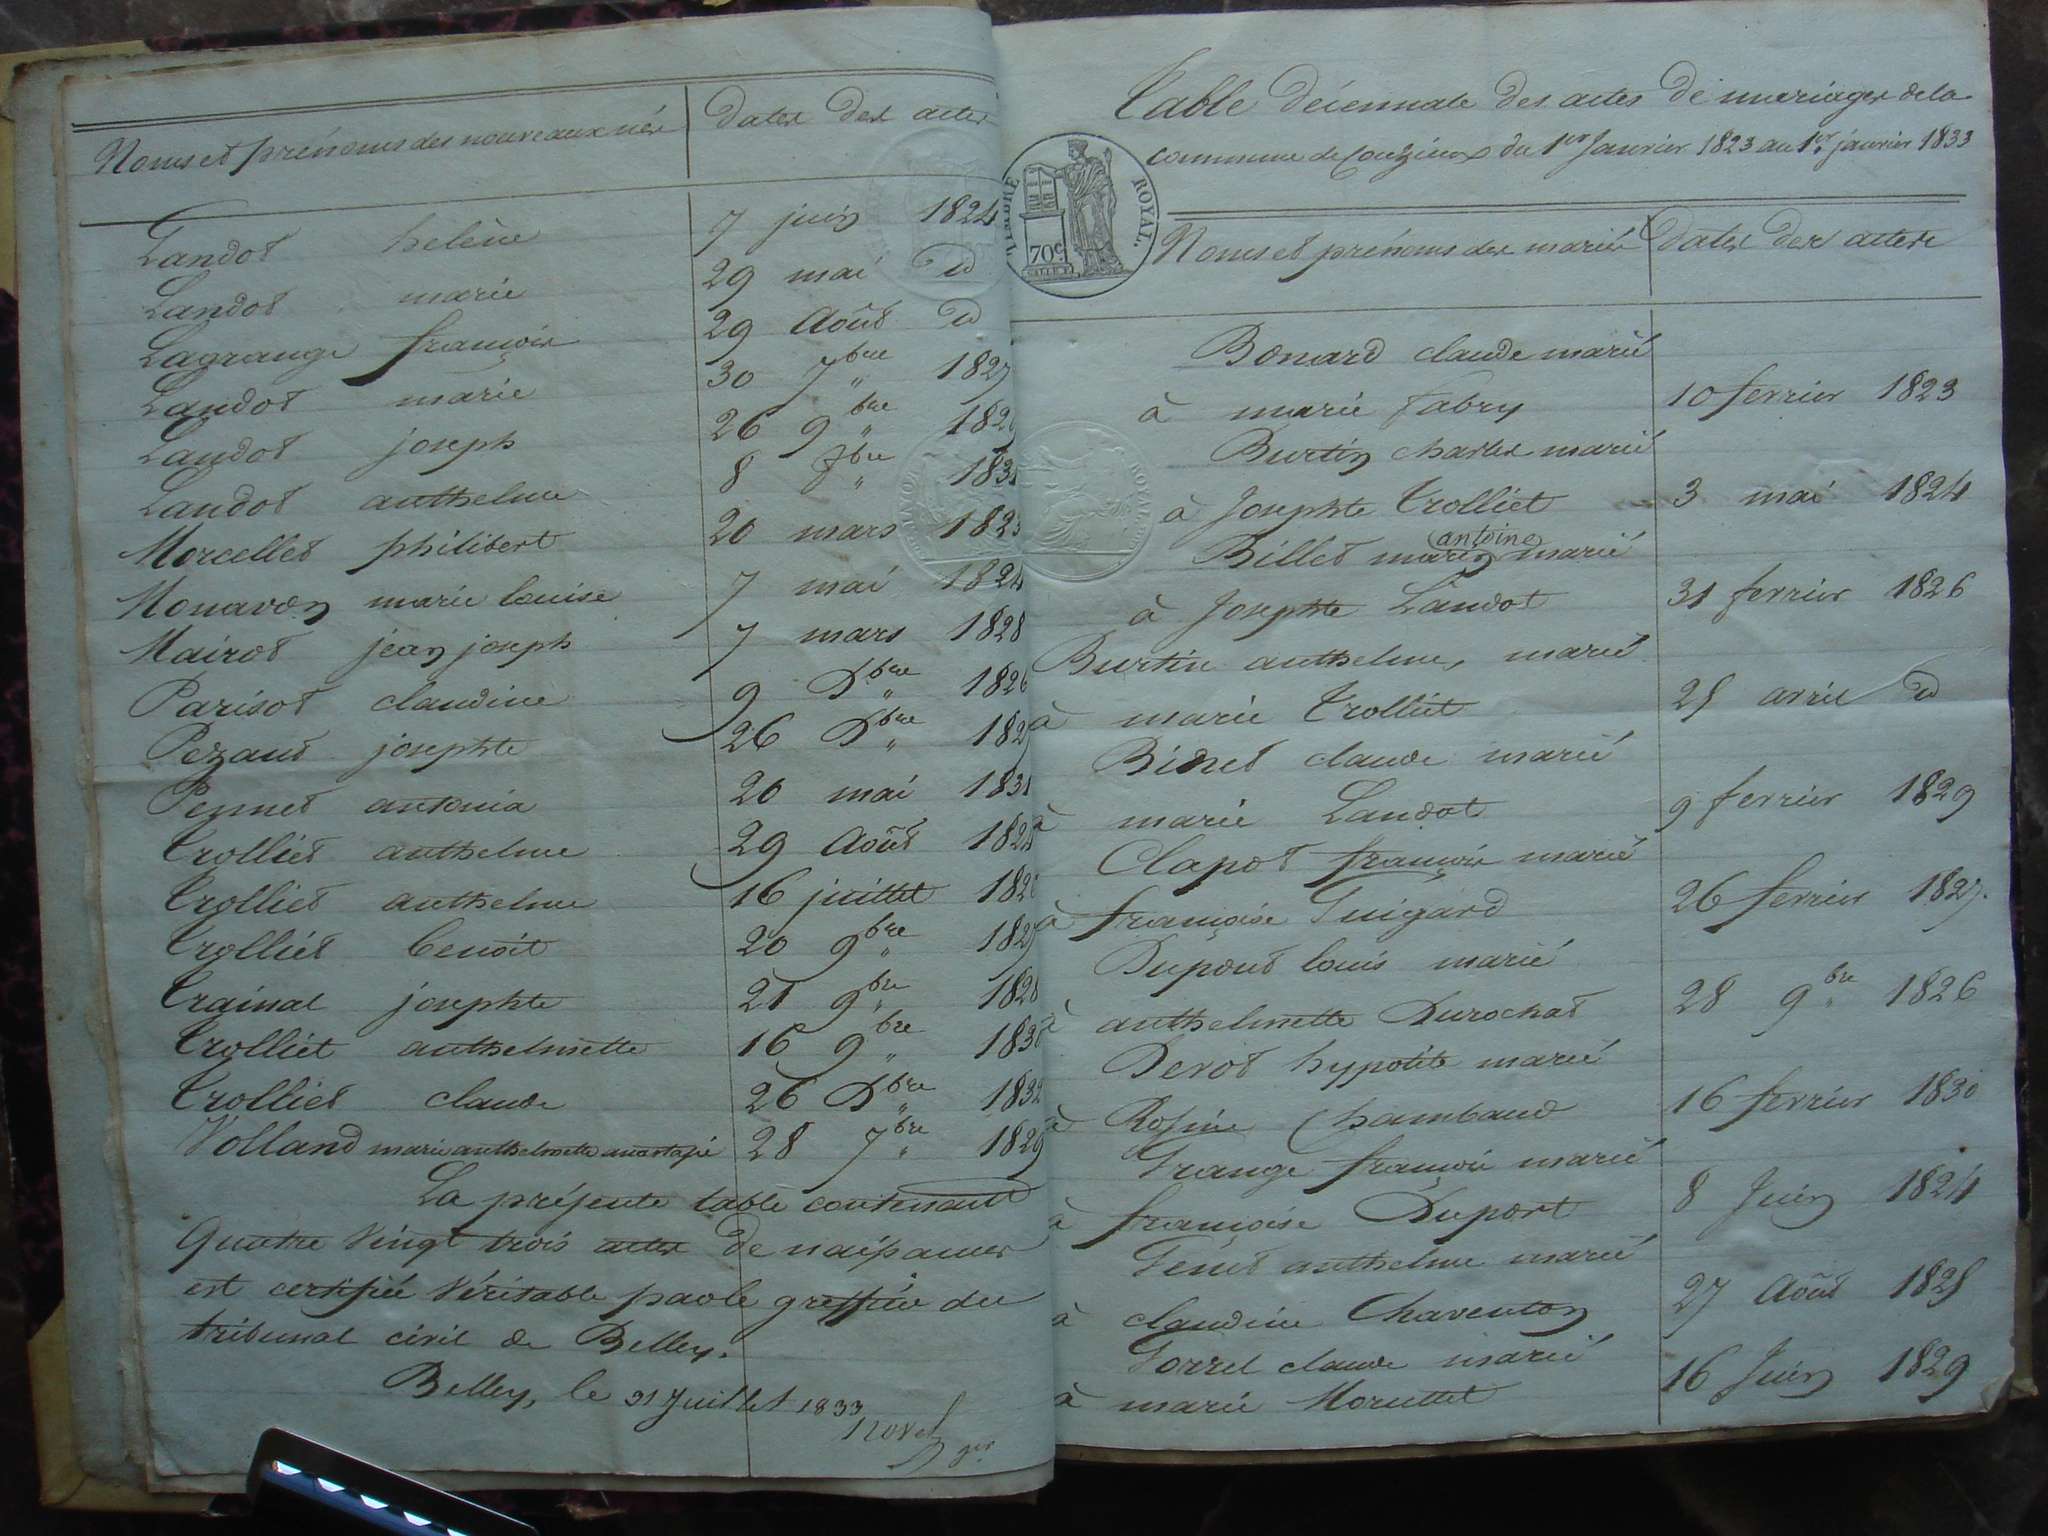 Noms et prénoms des nouveaux nés dates des actes
Landot helène 7 juin 1824
Landot marie 29 mai d
Lagrange françois 29 Août d
Landot marie 30 7bre 1827
Landot joseph 26 9bre
Landot anthelme 8
Morcellet philibert 20 mars 1823
Monavon marie louise 7 mai 1824
Mairot jean joseph 7 mars 1828
Parisot claudine 9 Dbre 1826
Pezant josephte 26 Dbre
Pennet antonia 20 mai 1831
Trolliet anthelme 29 Août
Trolliet anthelme 16 juillet
Trolliet benoit 20 9bre
Trainal josephte 21 9bre 1828
Trolliet anthelmette 16 9bre 1830
Trolliet claude 26 Dbre 1832
Volland marie anthelmette anastasie 28 7bre 1829
La présente table contenant
Quatre Vingt trois actes de naissances
est certifiée Véritable par le greffier du
tribunal civil de Belley.
Belley, le 31 Juillet 1833
Table décennale des actes de mariages de la
commune de Conzieux du 1er Janvier 1823 au 1er janvier 1833
TIMBRE ROYAL.
70c
Noms et prénoms des mariés dates des actes
Bonard claude marié
à marie fabry 10 fevrier 1823
Burtin charles marié
à Josephte Trolliet 3 mai 1824
antoine
Billet marin marié
à Josephte Landot 31 fevrier 1826
Burtin anthelme, marié
à marie Trolliet 25 avril d
Bidret claude marié
à marie Landot 9 fevrier 1829
Clapot françois marié
à françoise Guigard 26 fevrier 1827.
Dupont louis marié
à anthelmette Durochat 28 9bre 1826
Derot hypolite marié
à Rosine Chambaud 16 fevrier 1830
Grange françois marié
à françoise Duport 8 Juin 1824
Genet anthelme marié
à claudine Chaventon 27 Août 1825
Gorrel claude marié
à marie Moruttet 16 Juin 1829